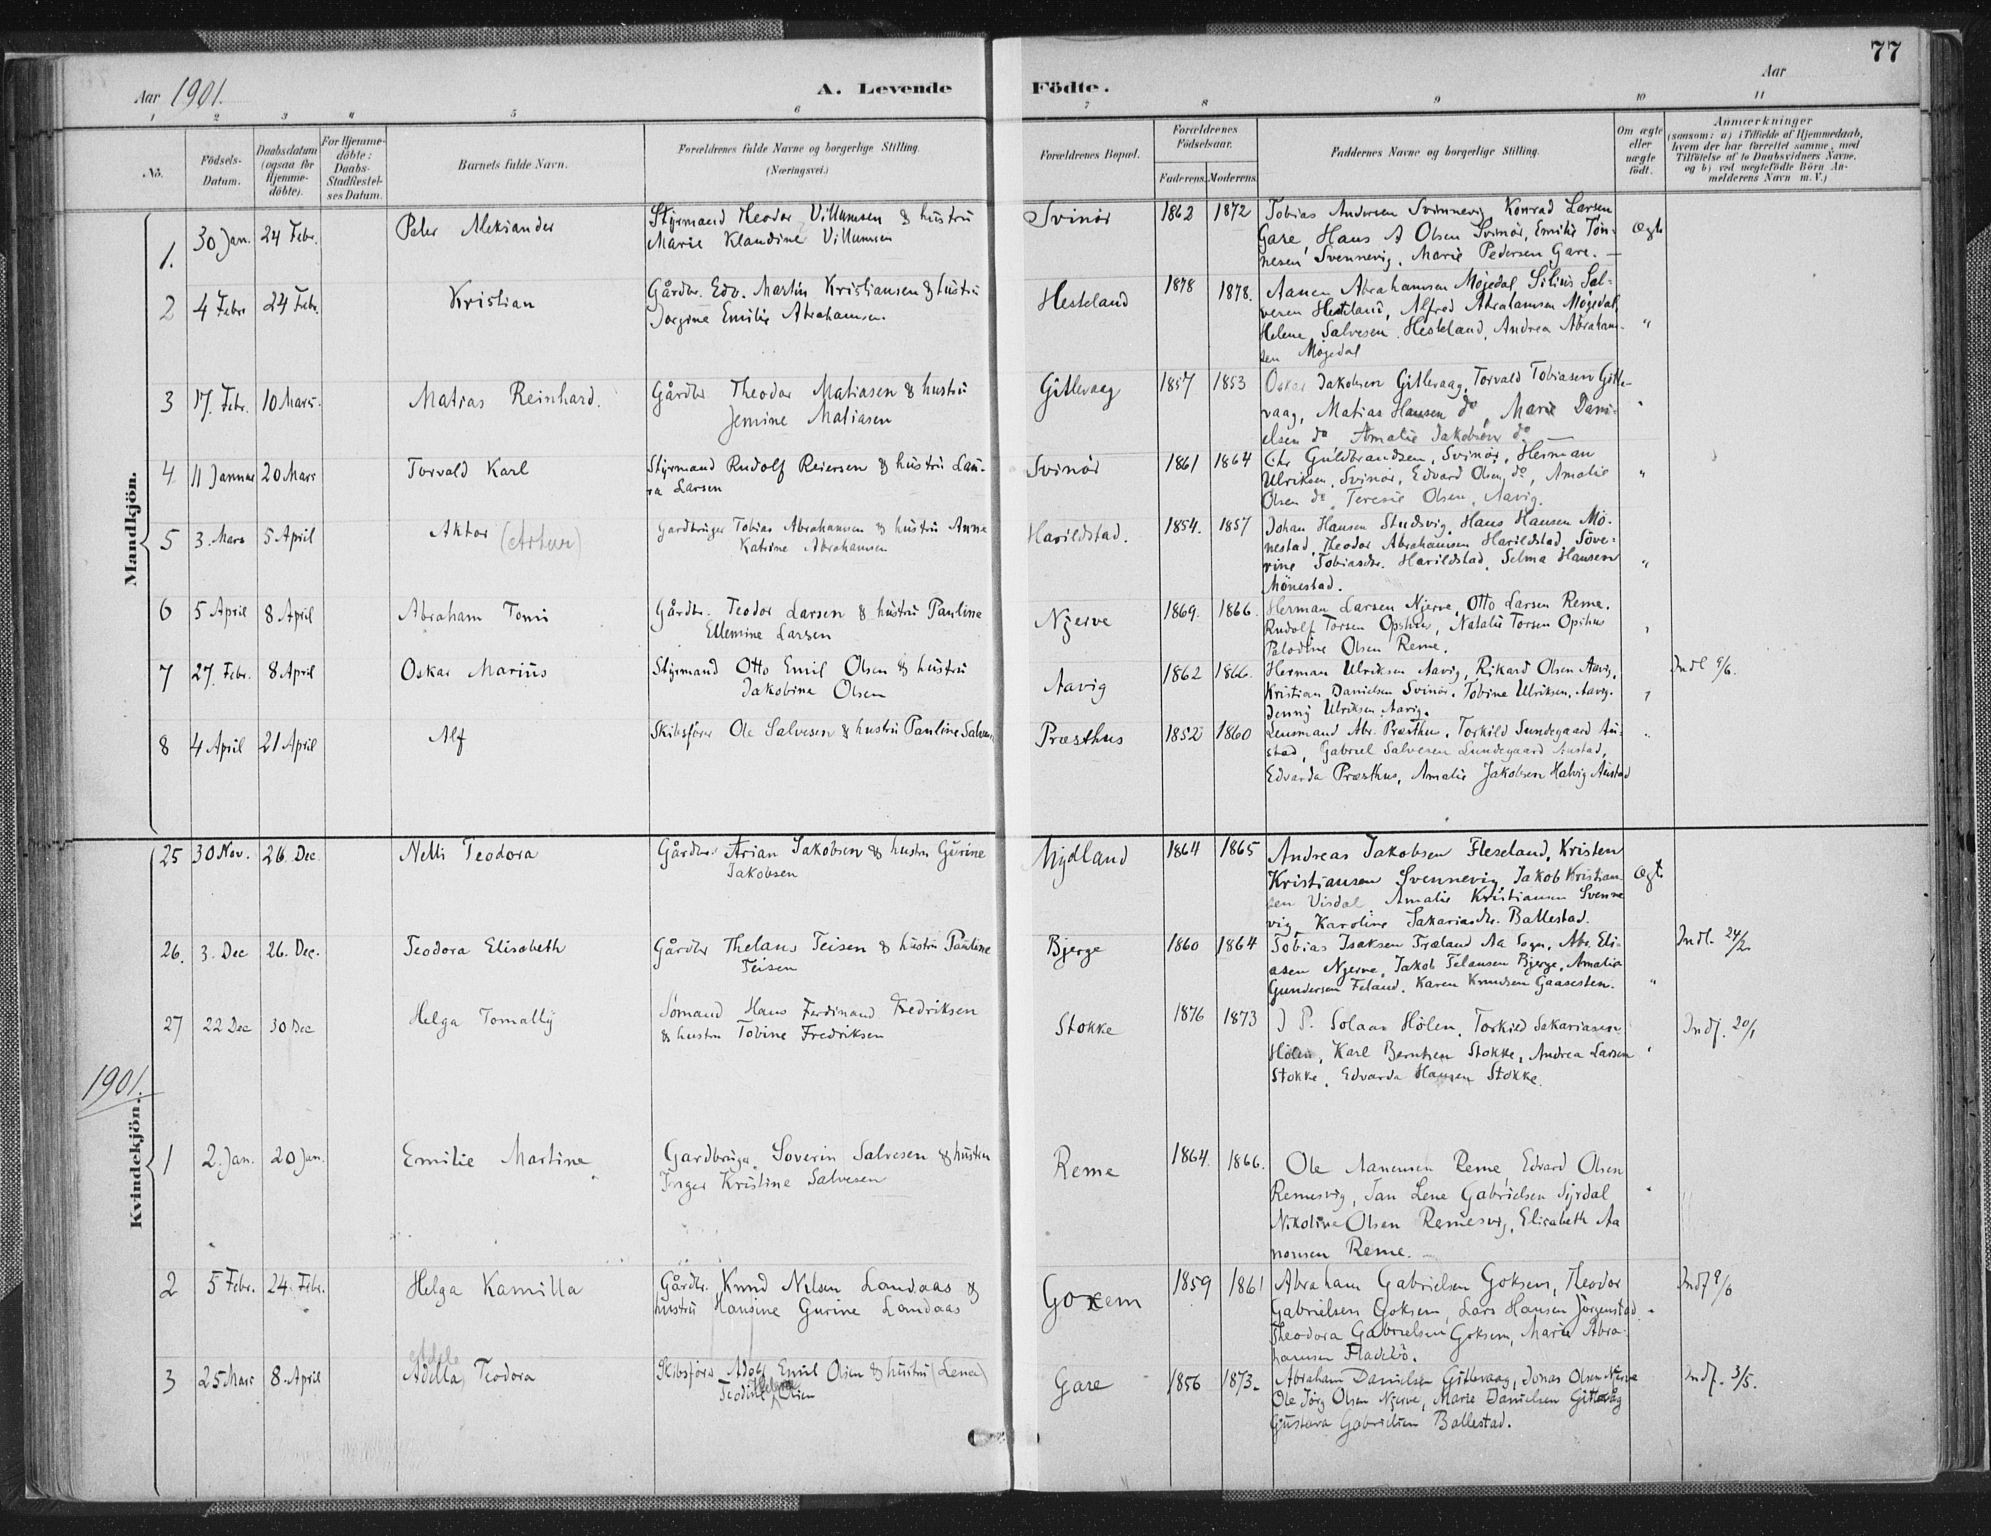 77
Aar 1901.
A. Levende Födte.
Aar
1 2 3 4 5 6 7 8 9 10 11
No.
Födsels-Datum.
Daabsdatum (ogsaa for Hjemmedöbte).
For Hjemmedöbte: Daabs-Stadfæstelses Datum.
Barnets fulde Navn.
Forældrenes fulde Navne og borgerlige Stilling. (Næringsvei.)
Forældrenes Bopæl.
Forældrenes Födselsaar.
Faderens. Moderens.
Faddernes Navne og borgerlige Stilling.
Om ægte eller uægte födt.
Anmærkninger
(saasom: a) i Tilfælde af Hjemmedaab, hvem der har forrettet samme, med Tilföielse af to Daabsvidners Navne, og b) ved uægtefödte Börn Anmelderens Navn m. V.)
Mandkjön.
1. 30 Jan. 24 Febr. Peter Aleksander
Styrmand Theodor Villumsen & hustru
Marie Klaudine Villumsen
Svinör 1862 1872
Tobias Andersen Svinnevig, Konrad Larsen
Gare, Hans A Olsen Svinör, Emilie Tön-
nesen Svennevig, Marie Pedersen Gare.
Ægte
2 4 Febr 24 Febr. Kristian
Gårdbr. Edv. Martin Kristiansen & hustru
Jorgine Emilie Abrahamsen
Hesteland 1878 1878.
Aanen Abrahamsen Møgedal, Silius Sal-
vesen Hesteland, Alfred Abrahamsen Møgedal,
Helene Salvesen Hesteland, Andrea Abraham-
sen Møgedal
"
3 17. Febr. 10 Mars. Matias Reinhard.
Gårdbr Theodor Matiasen & hustru
Jemine Matiasen
Gitlevaag 1857 1853
Oskar Jakobsen Gitlevaag, Torvald Tobiasen Gitle-
vaag, Matias Hansen do, Marie Dani-
elsen do, Amalie Jakobsen do
"
4 11 Januar 20 Mars Torvald Karl
Styrmand Rudolf Reiersen & hustru Lau-
ra Larsen
Svinör 1861 1864
Chr Guldbrandsen, Svinör, Herman
Ulriksen, Svinör, Edvard Olsen do, Amalie
Olsen do, Teresie Olsen, Aavig.
"
5 3. Mars 5 April Aktor (Artur)
Gardbruger Tobias Abrahamsen & hustru Anne
Katrine Abrahamsen
Harildstad. 1854. 1857
Johan Hansen Studsvig, Hans Hansen Mö-
nestad, Theodor Abrahamsen Harildstad, Söve-
rine Tobiasdtr. Harildstad, Selma Hansen
Mönestad.
"
6 5 April 8 April Abraham Tomi
Gårdbr. Teodor Larsen & hustru Pauline
Ellemine Larsen
Njerve 1869. 1866.
Herman Larsen Njerve, Otto Larsen Reme,
Rudolf Torsen Opshus, Natalie Torsen Opshus
Palodine Olsen Reme.
"
7 27. Febr. 8 April Oskar Marius
Styrmand Otto Emil Olsen & hustru
Jakobine Olsen
Aavig 1862 1866.
Herman Ulriksen Aavig, Rikard Olsen Aavig,
Kristian Danielsen Svinör, Tobine Ulriksen, Aavig.
Jenny Ulriksen Aavig.
"
Indl 9/6.
8 4 April 21 April Alf
Skibsförer Ole Salvesen & hustru Pauline Salvesen
Præsthus 1852 1860
Lensmand Abr. Præsthus, Torkild Lundegaard Au-
stad, Gabriel Salvesen Lundegaard Austad,
Edvarda Præsthus, Amalie Jakobsen Halvig Austad
"
Kvindekjön.
25 30 Nov. 26 Dec. Nelli Teodora
Gårdbr. Arian Jakobsen & hustru Gurine
Jakobsen
Mydland 1864 1865
Andreas Jakobsen Fleseland, Kristen
Kristiansen Svennevig, Jakob Kristian-
sen Visdal, Amalie Kristiansen Svenne
vig, Karoline Sakariasdtr. Ballestad.
Ægte
26. 3. Dec 26. Dec. Teodora Elisabeth
Gårdbr Thelaus Teisen & hustru Pauline
Teisen
Bjerge 1860 1864
Tobias Isaksen Træland Aa Sogn, Abr. Eli-
asen Njerve, Jakob Telausen Bjerge, Amalia
Gundersen Feland, Karen Knudsen Gaasesten.
"
Indl. 24/2
27 22 Dec 30 Dec Helga Tomally
Sømand Hans Ferdinand Fredriksen
& hustru Tobine Fredriksen
Stokke 1876 1873
J P. Solaas Hölen, Torkild Sakariasen
Hölen, Karl Berntsen Stokke, Andrea Larsen
Stokke, Edvarda Hansen Stokke.
"
Indf. 20/1
1901.
1 2. Jan. 20 Jan. Emilie Martine
Gardbruger Soverin Salvesen & hustru
Inger Kristine Salvesen
Reme 1864. 1866.
Ole Aanensen Reme, Edvard Olsen
Remesvig, Jan Lene Gabrielsen Syrdal
Nikoline Olsen Remesvig, Elisabeth Aa
nonsen Reme.
"
2 5 Febr. 24. Febr. Helga Kamilla
Gårdbr. Knud Nilsen Landaas &
hustru Hansine Gurine Landaas
Goxem 1859 1861
Abraham Gabrielsen Goksem, Theodor
Gabrielsen Goksem, Lars Hansen Jörgenstad
Theodora Gabrielsen Goksem, Marie Abra-
hamsen Fladebö.
"
Indf 9/6
3 25 Mars 8. April Adella Teodora
Skibsförer Adolf Emil Olsen & hustru (Lena)
Teodine Helene Olsen
Gare 1856 1873.
Abraham Danielsen Gitlevaag, Jonas Olsen Njerve
Ole Jörg Olsen Njerve, Marie Danielsen Gitlevåg
Gustava Gabrielsen Ballestad.
Indf. 3/5.